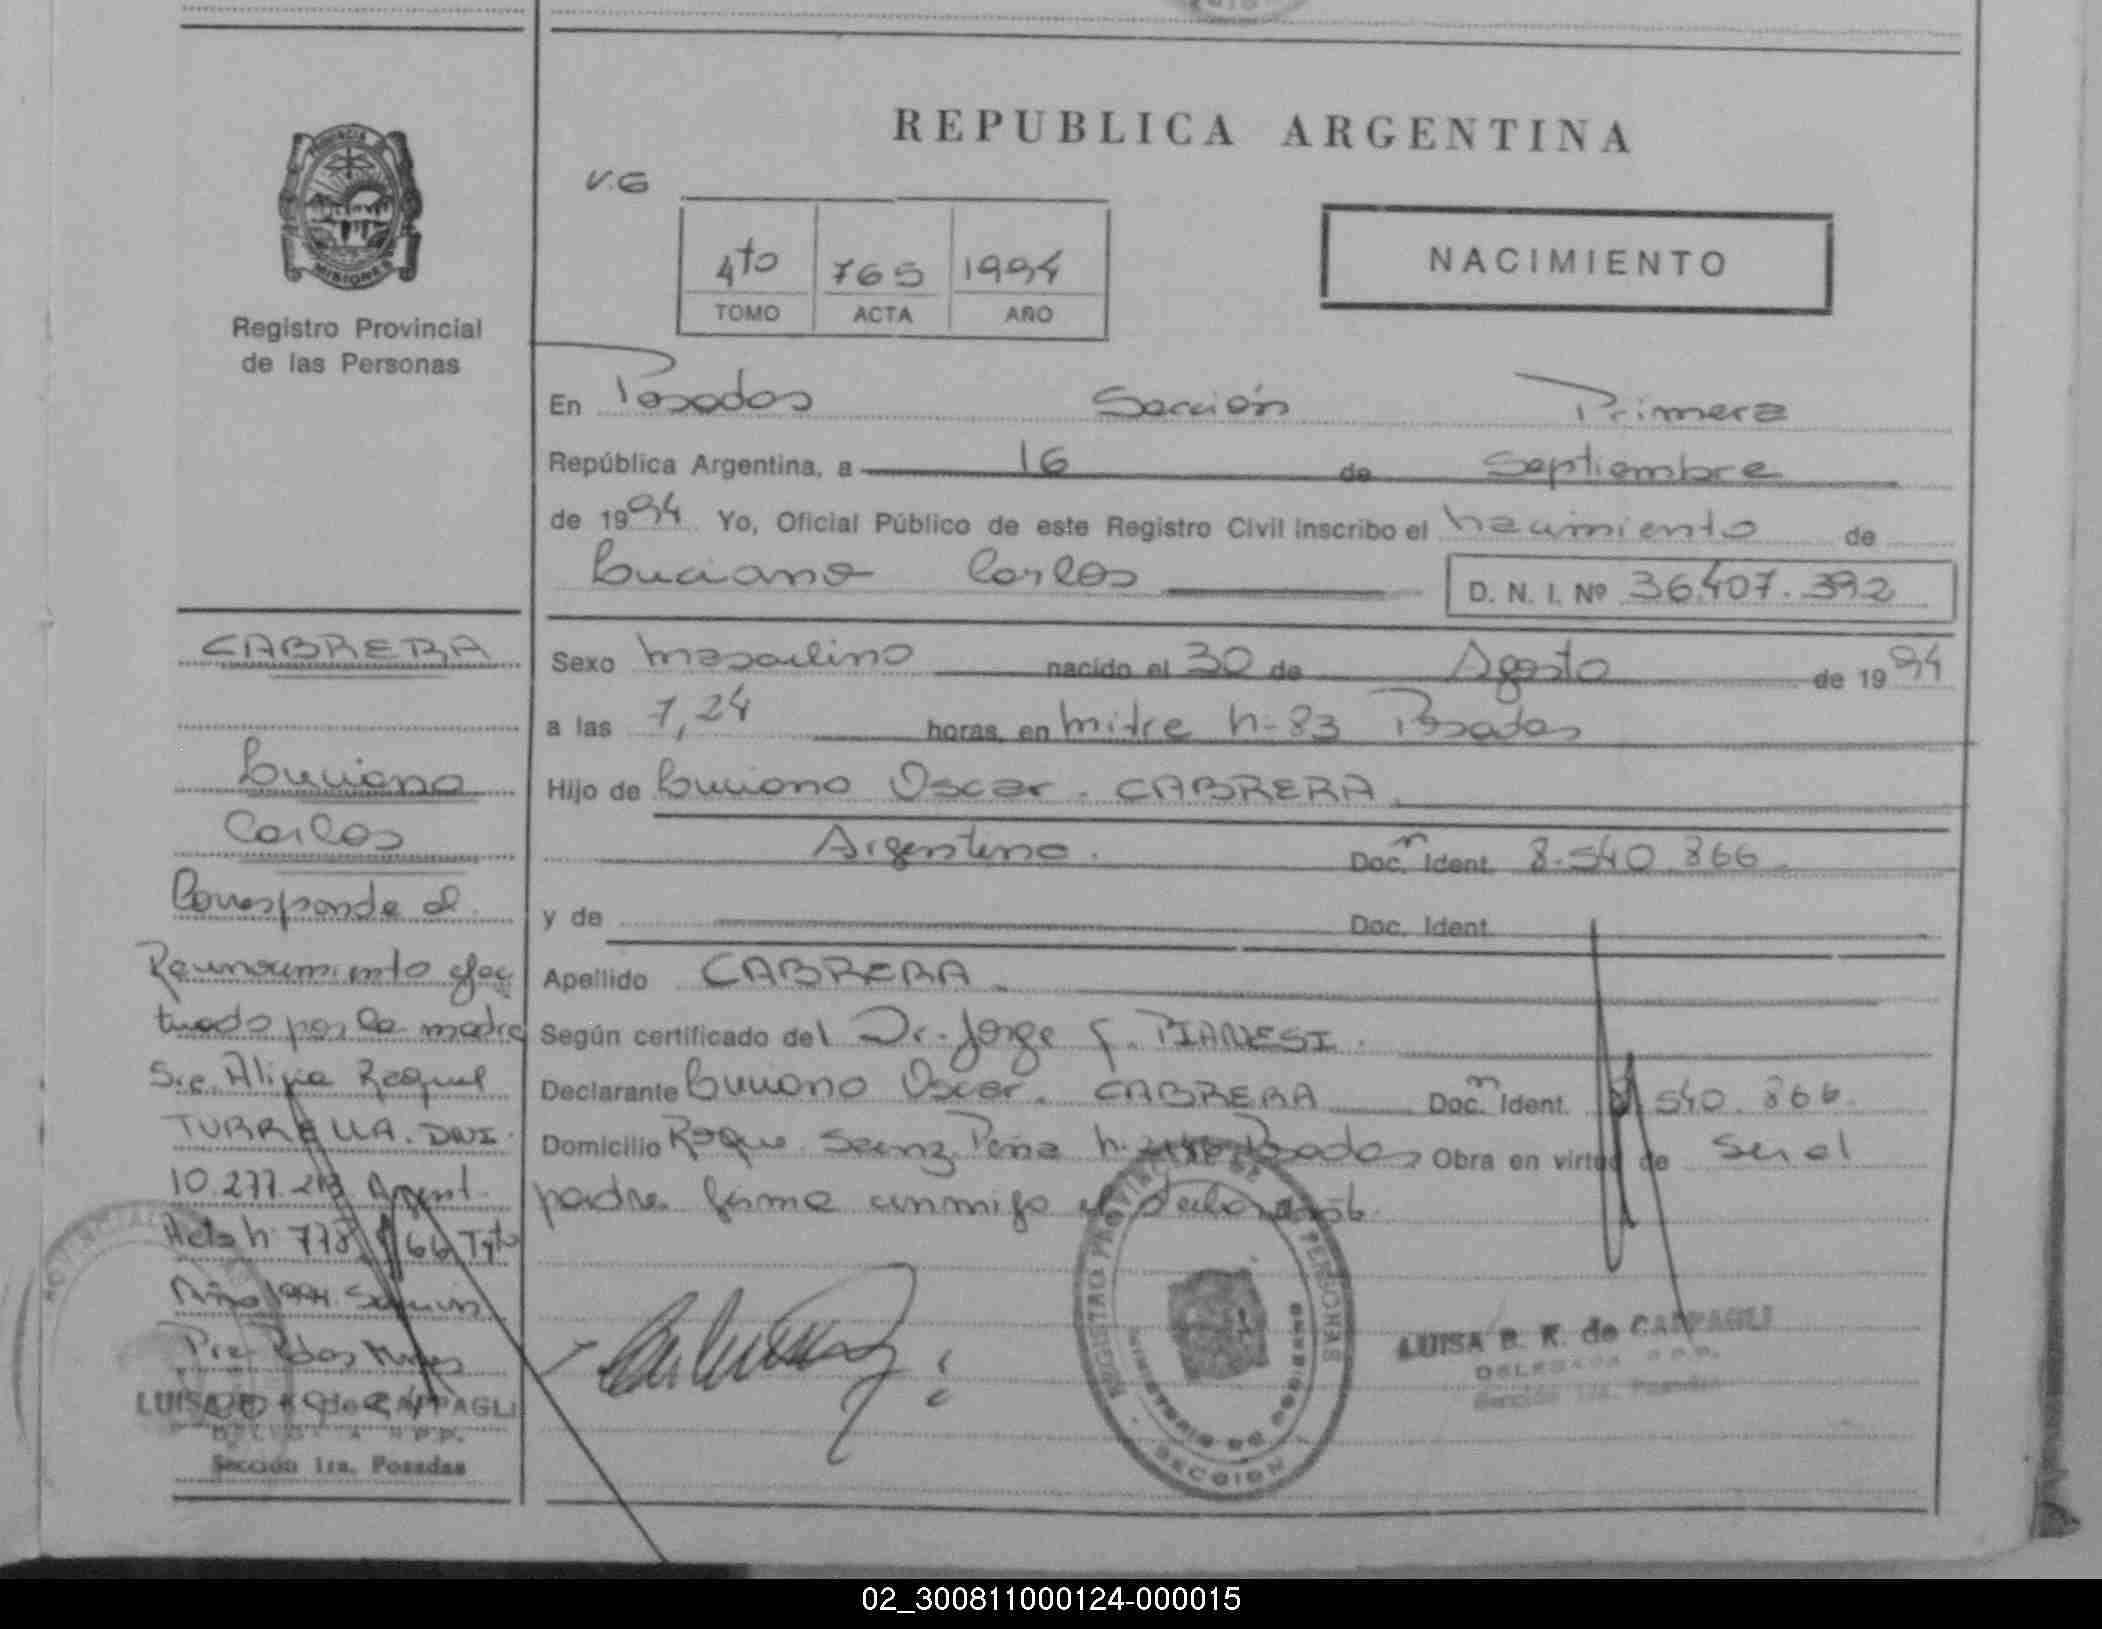 REPUBLICA ARGENTINA
V.G
4to 765 1994
TOMO ACTA AÑO
NACIMIENTO
PROVINCIA
MISIONES
Registro Provincial
de las Personas
En Posadas Sección Primera
República Argentina, a 16 de Septiembre
de 1994 Yo, Oficial Público de este Registro Civil inscribo el nacimiento de
Luciano Carlos D. N. I. Nº 36.407.392
Sexo masculino nacido el 30 de Agosto de 1994
a las 7,24 horas, en mitre n- 83 Posadas
Hijo de Luciano Oscar. CABRERA
Argentino. Doc. Ident. 8.540.866
y de Doc. Ident.
Apellido CABRERA
Según certificado del Dr. Jorge PIANESI.
Declarante Luciano Oscar. CABRERA Doc. Ident. 8.540.866
Domicilio Roque Saenz Peña Posadas Obra en virtud de ser el
padre firma conmigo
CABRERA
Luciano
Carlos
Corresponde al
Reconocimiento efec
tuado por la madre
Sra. Alipia Raquel
DNI.
10.277. Argent.
Acta n- 778 66 T4to
Año 1994. Sección
Pra. Pdas Mnes
LUISA de CAPPAGLI
Sección 1ra. Posadas
REGISTRO PROVINCIAL DE LAS PERSONAS
MINISTERIO DE GOBIERNO
SECCION
LUISA B. K. de CAPPAGLI
DELEGADA R.P.P.
Sección 1ra. Posadas
02_300811000124-000015